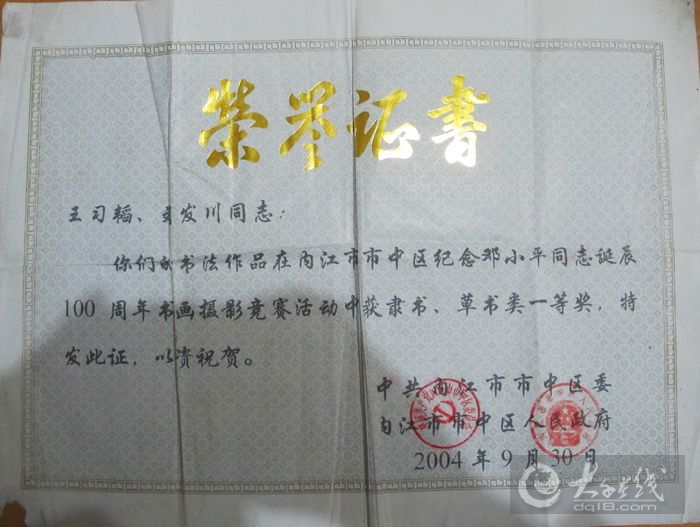 荣誉证书
王习韬、肖发川同志：
你们的书法作品在内江市市中区纪念邓小平同志诞辰
100 周年书画摄影竞赛活动中获隶书、草书类一等奖，特
发此证，以资祝贺。
中共内江市市中区委
内江市市中区人民政府
2004 年 9 月 30 日
大千在线
dq18.com